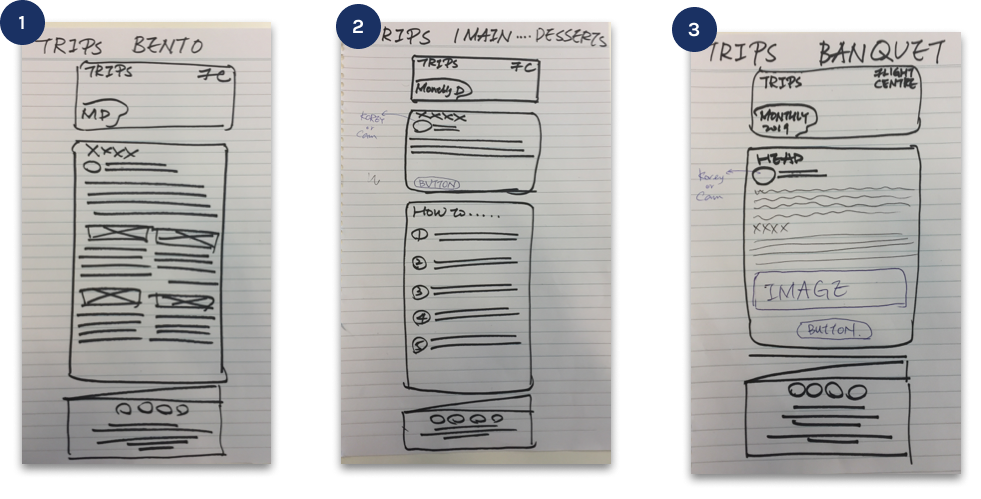 1
TRIPS BENTO
TRIPS FC
MD
XXXX
2
TRIPS 1 MAIN .... DESSERTS
TRIPS FC
Monthly D
XXXX
KOREY
or
Cam
BUTTON
HOW TO.....
1
2
3
4
5
3
TRIPS BANQUET
TRIPS FLIGHT
CENTRE
MONTHLY
2019
HEAD
Korey
or
Cam
XXXX
IMAGE
BUTTON